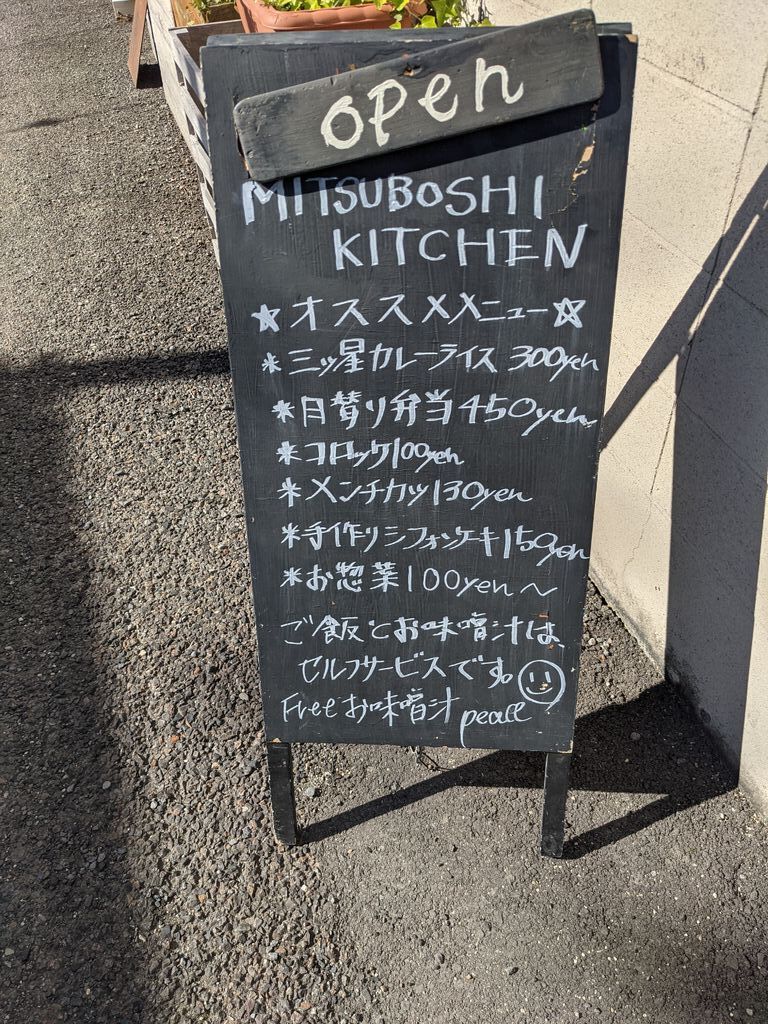 open
MITSUBOSHI
KITCHEN
★オススメメニュー☆
*三ッ星カレーライス 300yen
*日替り弁当 450yen
*コロッケ100yen
*メンチカツ130yen
*手作りシフォンケーキ150yen
*お惣菜100yen～
ご飯とお味噌汁は、
セルフサービスです。
Freeお味噌汁 peace